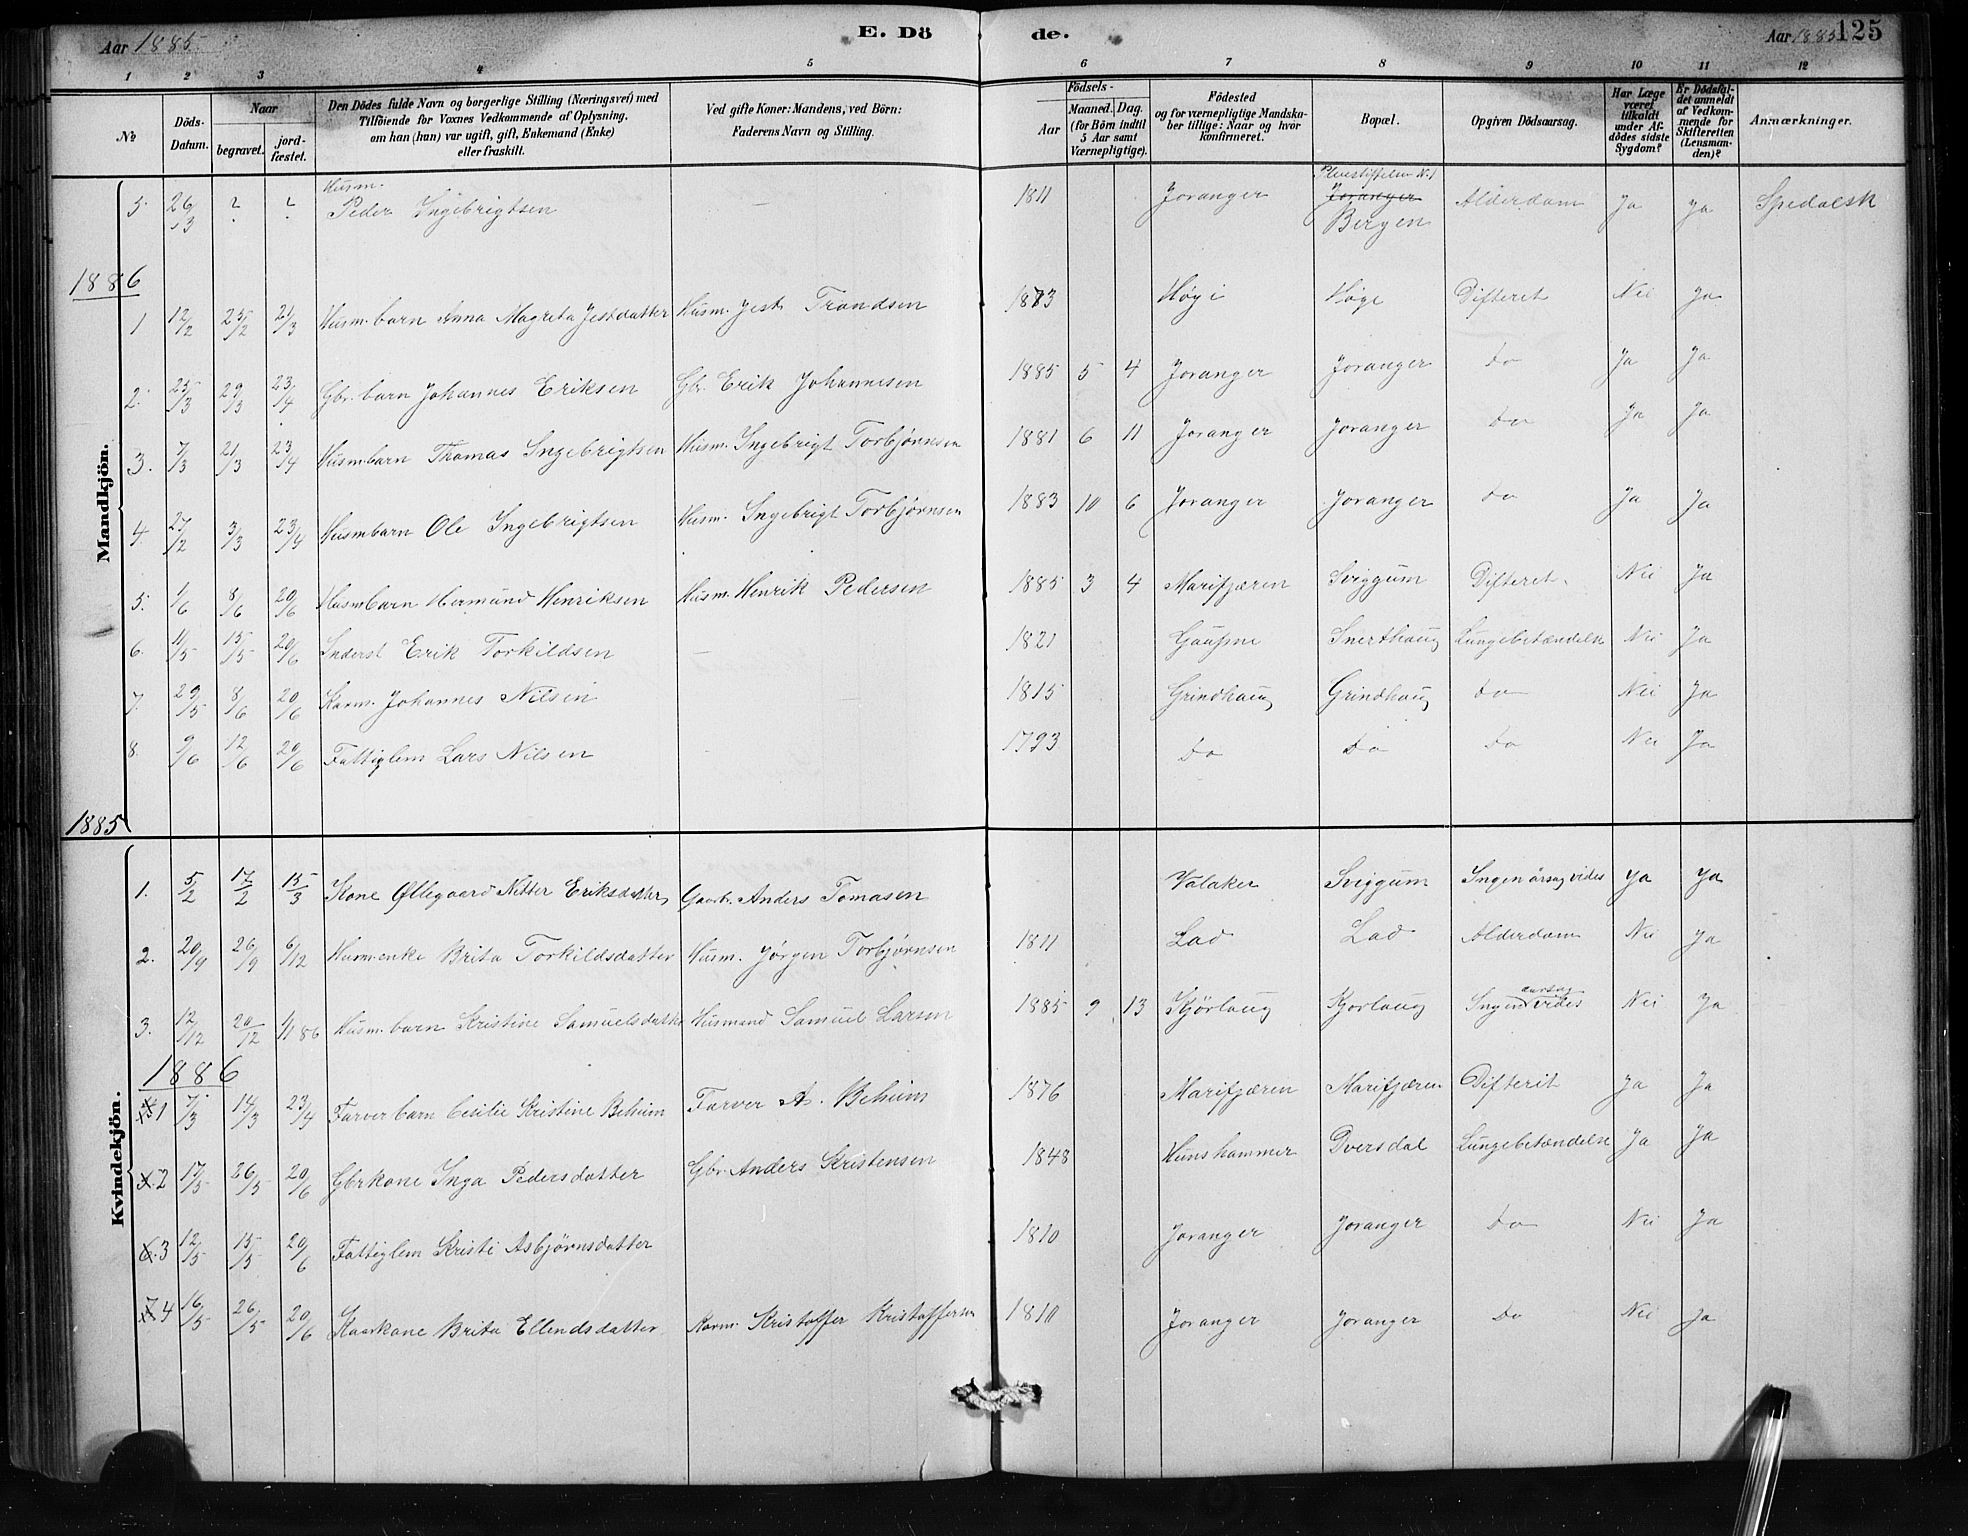 Aar 1885. E. Dö de. Aar 1885 125
1 2 3 4 5 6 7 8 9 10 11 12
No Döds-Datum. Naar begravet. jordfæstet. Den Dödes fulde Navn og borgerlige Stilling (Næringsvei) med Tilföiende for Voxnes Vedkommende af Oplysning, om han (hun) var ugift, gift, Enkemand (Enke) eller fraskilt. Ved gifte Koner: Mandens, ved Börn: Faderens Navn og Stilling. Födsels- Aar Maaned. Dag. (for Börn indtil 5 Aar samt Værnepligtige). Födested og for værnepligtige Mandskaber tillige: Naar og hvor konfirmeret. Bopæl. Opgiven Dödsaarsag. Har Læge været tilkaldt under Afdödes sidste Sygdom? Er Dödsfaldet anmeldt af Vedkommende for Skifteretten (Lensmanden)? Anmærkninger.
Mandkjön.
5. 26/3 ? ? Husm. Peder Ingebrigtsen — 1811 Joranger Pleiestiftelsen N.1 Joranger Bergen Alderdom Ja Ja Spedalsk
1886
1 12/2 25/2 21/3 Husm. barn Anna Magreta Jestdatter Husm. Jest Trondsen 1873 Høgi Høge Difteret Nei Ja
2. 25/3 29/3 23/4 Gbr. barn Johannes Eriksen Gbr. Erik Johannesen 1885 5 4 Joranger Joranger Do Ja Ja
3. 7/3 21/3 23/4 Husmbarn Thomas Ingebrigtsen Husm. Ingebrigt Torbjørnsen 1881 6 11 Joranger Joranger Do Ja Ja
4. 27/2 3/3 23/4 Husmbarn Ole Ingebrigtsen Husm. Ingebrigt Torbjørnsen 1883 10 6 Joranger Joranger Do Ja Ja
5. 1/6 8/6 20/6 Husmbarn Hermund Henriksen Husm. Henrik Pedersen 1885 3 4 Marifjæren Sviggum Difteret. Nei Ja
6. 11/5 15/5 20/6 Inderst Erik Torkildsen — 1821 Gaupne Snerthaug Lungebetændelse Nei Ja
7. 29/5 8/6 20/6 Kaarm. Johannes Nilsen — 1815 Grindhaug Grindhaug Do Nei Ja
8. 9/6 12/6 20/6 Fattiglem Lars Nilsen — 1793 Do Do Do Nei Ja
1885
Kvindekjön.
1. 5/2 17/2 15/3 Kone Øllegaard Nitter Eriksdatter Gaarbr. Anders Tomasen Valaker Sviggum Ingen årsag vides Ja Ja
2. 20/9 26/9 6/12 Husm. enke Brita Torkildsdatter Husm. Jørgen Torbjørnsen 1811 Lad Lad Alderdom Nei Ja
3. 12/12 20/12 1/1 86 Husm. barn Kristine Samuelsdatter Husmand Samuel Larsen 1885 9 13 Kjørlaug Kjørlaug Ingen aarsag vides Nei Ja
1886
4 1 7/3 14/3 23/4 Farver barn Cesilie Kristine Behum Farver A. Behum 1876 Marifjæren Marifjæren Difterit Ja Ja
5. 2 17/5 26/5 20/6 Gbrkone Inga Pedersdatter Gbr. Anders Kristensen 1848 Hunshammer Dversdal Lungebetændelse Ja Ja
6. 3 12/5 15/5 20/6 Fattiglem Kristi Asbjørnsdatter 1810 Joranger Joranger Do Nei Ja
7 4 16/5 26/5 20/6 Kaarkone Brita Ellendsdatter Kaarm. Kristoffer Kristoffersen 1810 Joranger Joranger Do Nei Ja